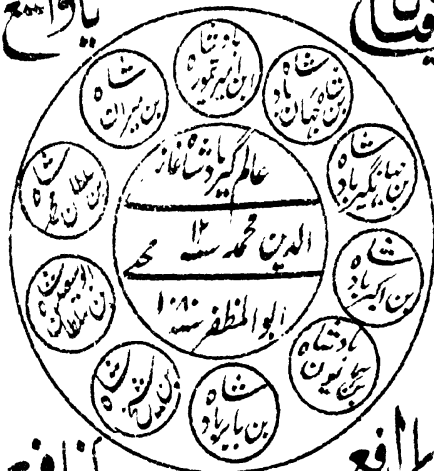 عالم گیر بادشاہ غازی
الدین محمد سنہ ۱۲ محے
ابو المظفر سنہ ۱۰۸۰
ابن امیر تیمور بادشاہ
بن شاہ جہان بادشاہ
بن جہانگیر بادشاہ
بن اکبر بادشاہ
بن ہمایون بادشاہ
بن بابر بادشاہ
بن عمر شیخ شاہ
بن سلطان ابو سعید شاہ
بن سلطان محمد شاہ
بن میران شاہ